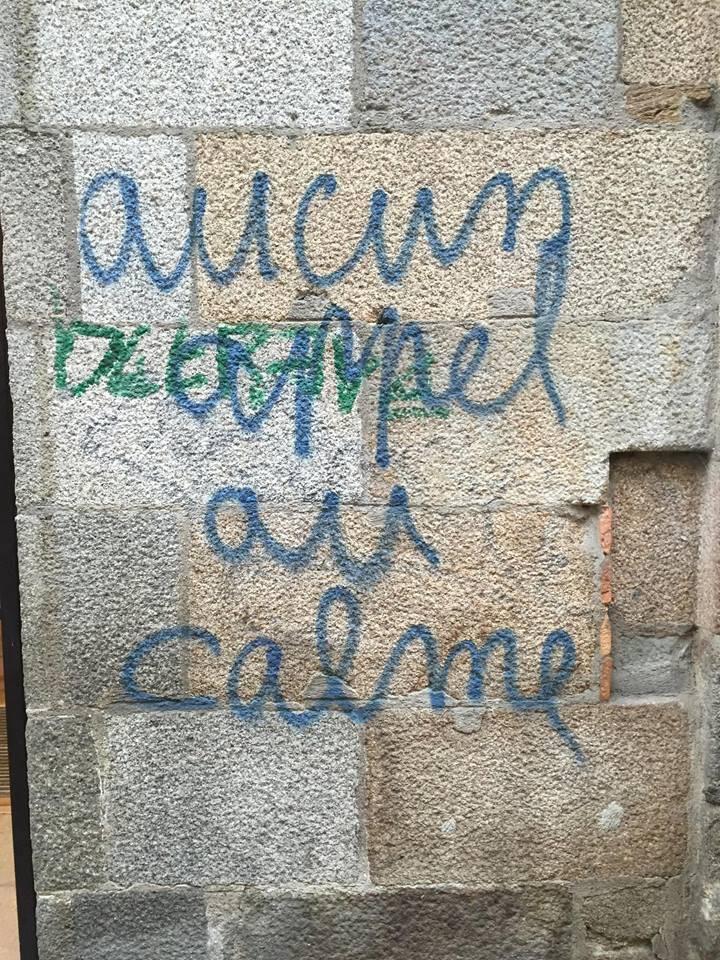 aucun
appel
au
calme